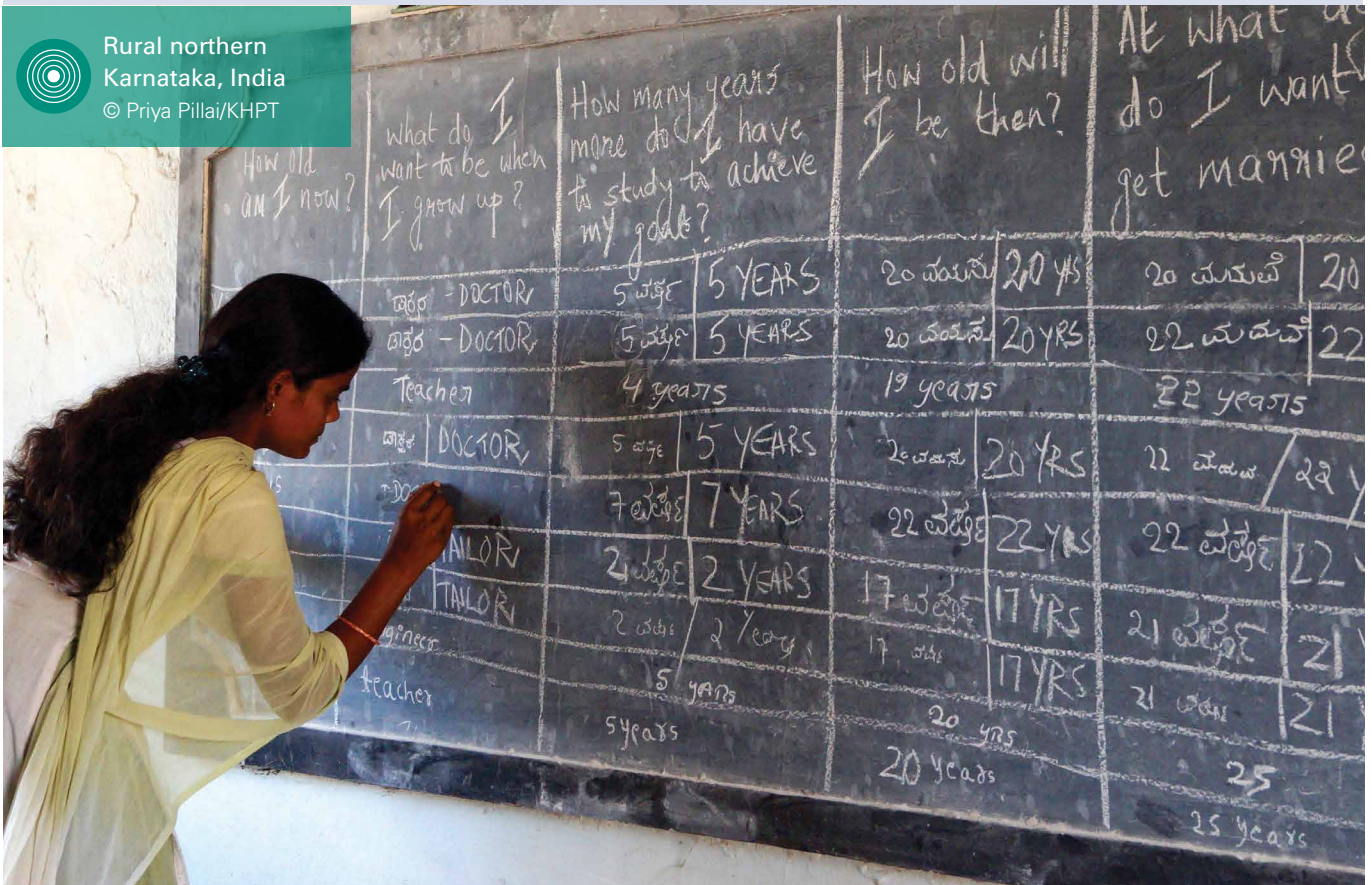 Rural northern
Karnataka, India
© Priya Pillai/KHPT
How old
am I now?
what do I
want to be when
I grow up?
How many years
more do I have
to study to achieve
my goal?
How old will
I be then?
At what
do I want
get marrie
ಡಾಕ್ಟರ - DOCTOR 5 ವರ್ಷ 5 YEARS 20 ವಯಸು 20 YRS 20 ಮದುವೆ 20
ಡಾಕ್ಟರ - DOCTOR 5 ವರ್ಷ 5 YEARS 20 ವಯಸು 20 YRS 22 ಮದುವೆ 22
Teacher 4 years 19 years 22 years
ಡಾಕ್ಟರ DOCTOR 5 ವರ್ಷ 5 YEARS 20 ವಯಸು 20 YRS 22 ಮದುವೆ 22 Y
DOC 7 ವರ್ಷ 7 YEARS 22 ವರ್ಷ 22 YRS 22 ವರ್ಷ 22
TAILOR 2 ವರ್ಷ 2 YEARS 17 ವರ್ಷ 17 YRS 21 ವರ್ಷ 21
TAILOR 2 ವರ್ಷ 2 Years 17 ವರ್ಷ 17 YRS 21 ವರ್ಷ 21
gineer 5 yARs 20 yRs 25
teacher 5 years 20 years 25 years